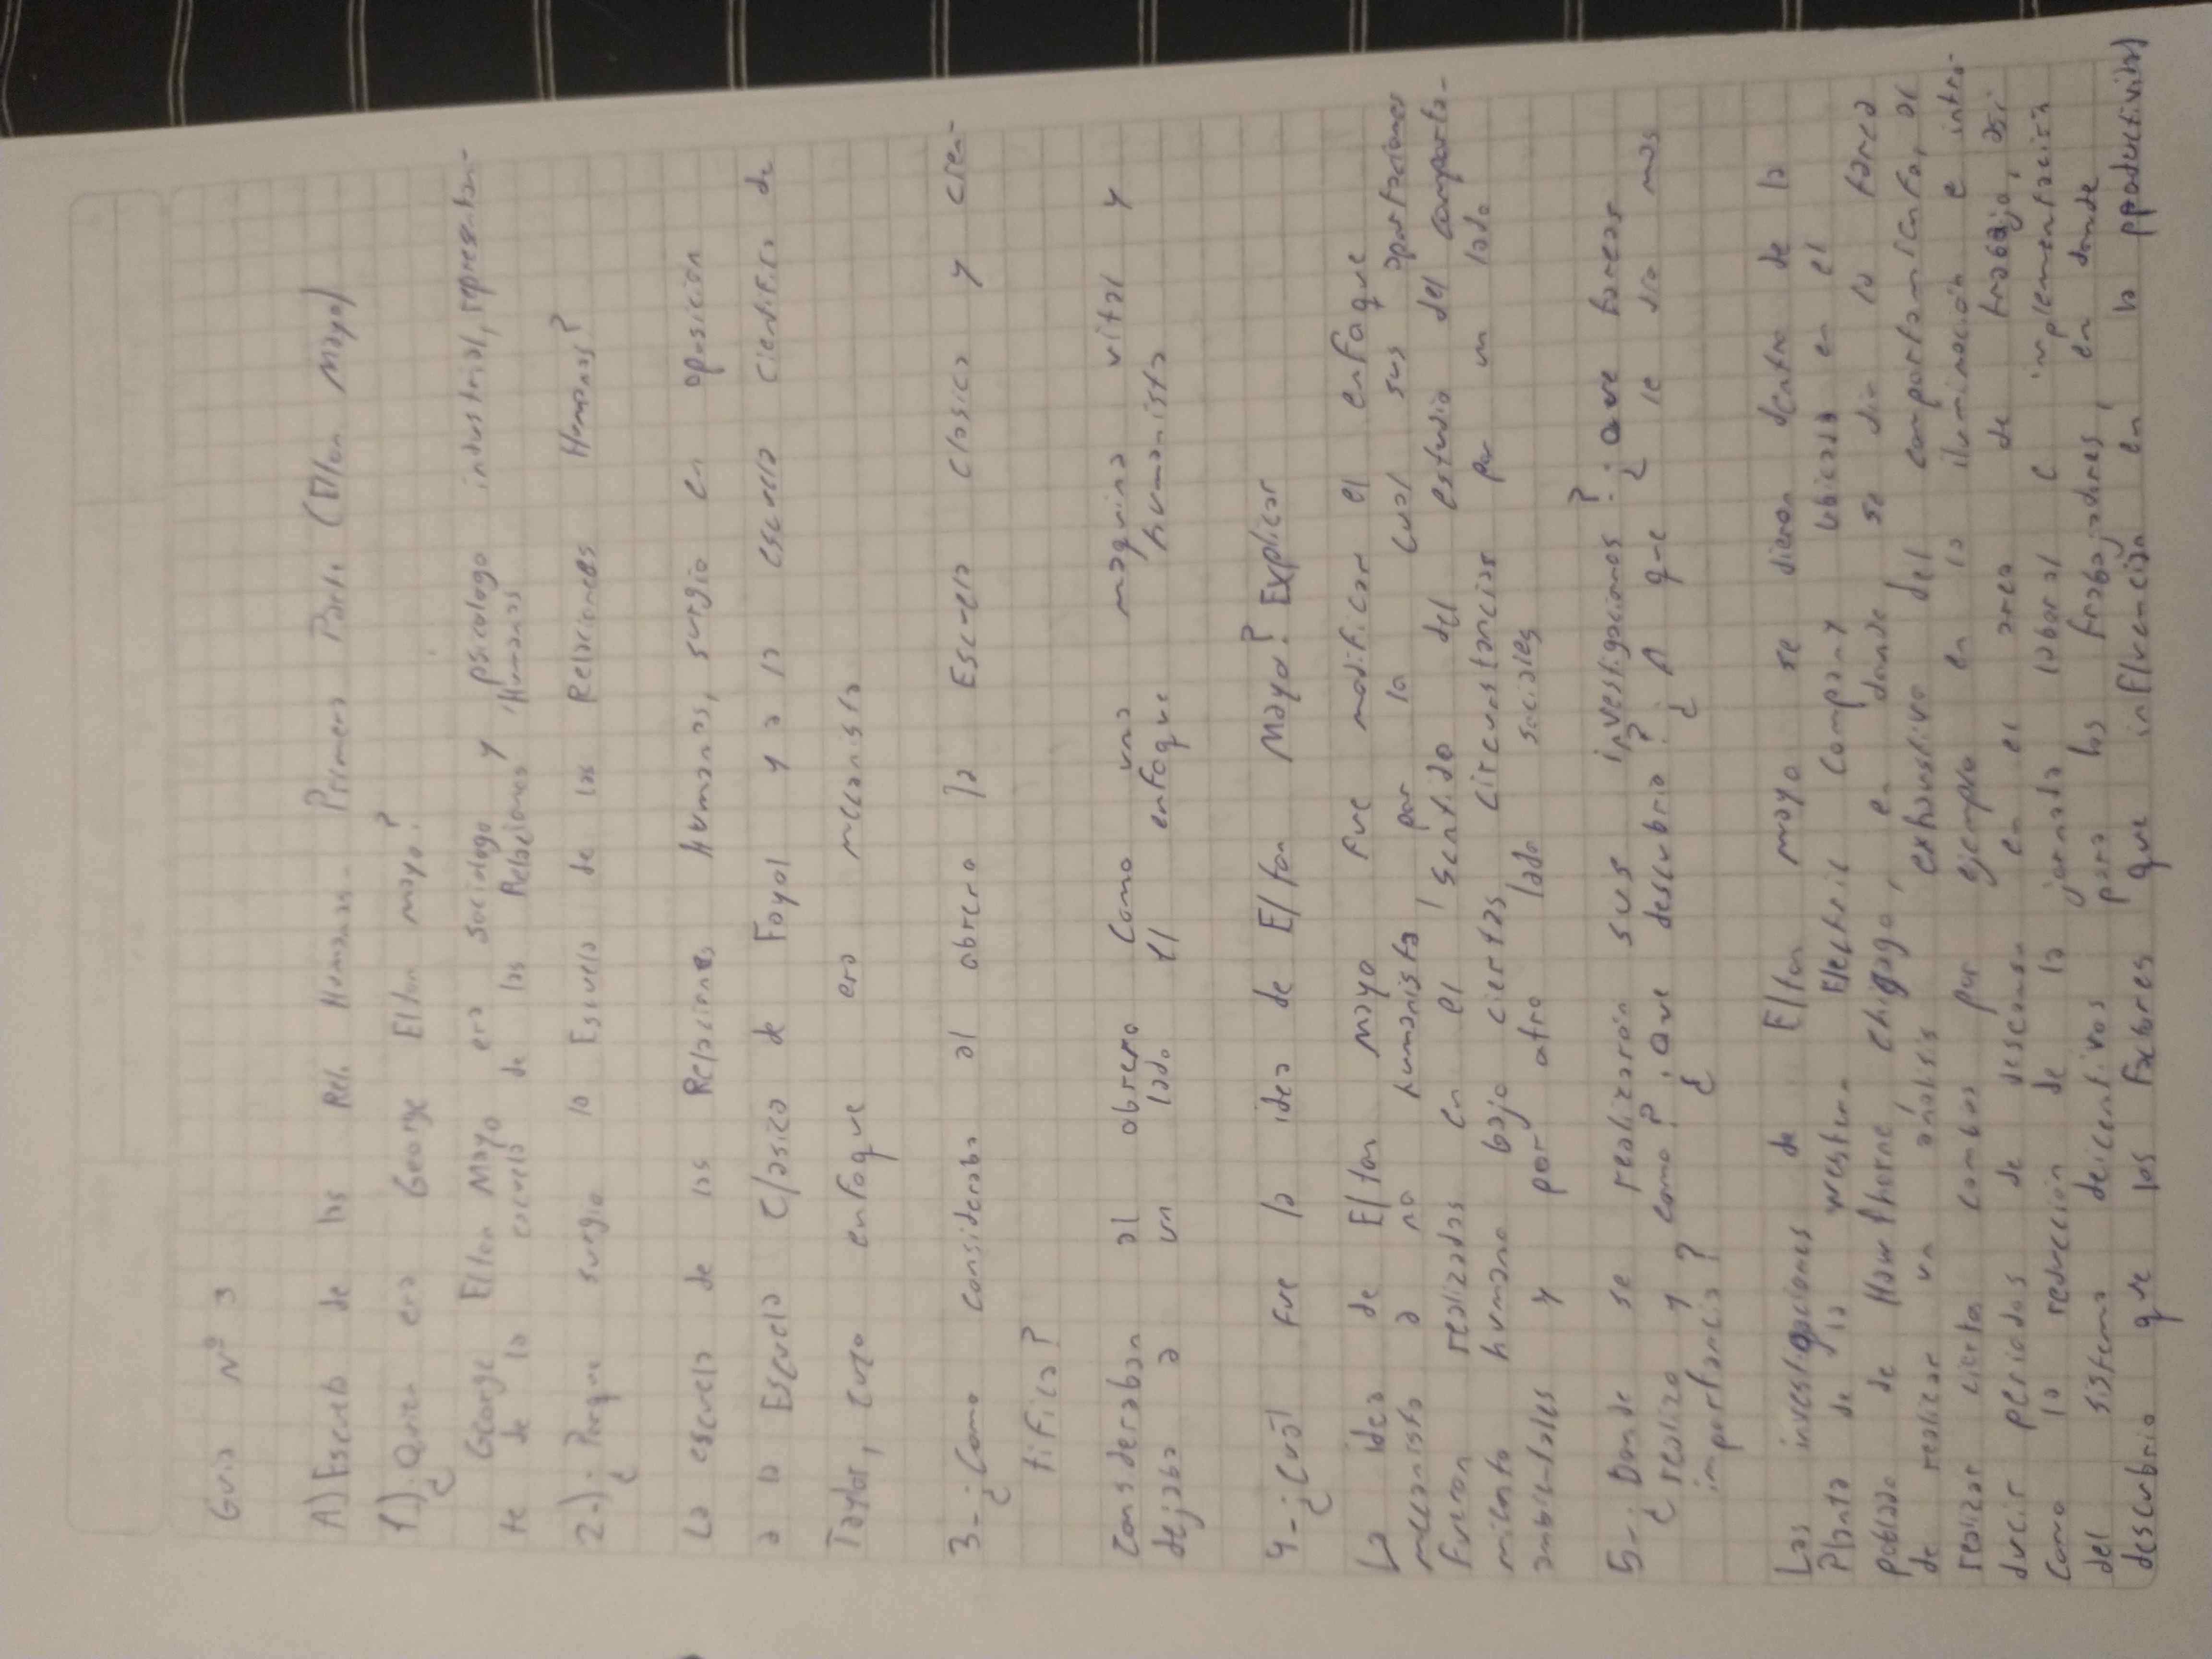 Guia Nº 3
A) Escuela de las Rel. Humanas - Primera Parte (Elton Mayo)
1-) ¿Quien era George Elton mayo?
George Elton Mayo era sociologo y psicologo industrial, representan-
te de la escuela de las Relaciones Humanas
2-) ¿Porque surgio la Escuela de las Relaciones Humanas?
La escuela de las Relaciones humanas, surgio en oposición
a la Escuela Clasica de Fayol y a la escuela cientifica de
Taylor, cuyo enfoque era mecanista
3- ¿Como consideraba al obrero la Escuela Clasica y cien-
tifica?
Consideraban al obrero como una maquina vital y
dejaba a un lado el enfoque humanista
4- ¿Cuál fue la idea de Elton Mayo? Explicar
La idea de Elton Mayo fue modificar el enfoque
mecanista a no humanista, por la cual sus aportaciones
fueron realizadas en el sentido del estudio del comporta-
miento humano bajo ciertas circunstancias por un lado
ambientales y por otro lado sociales
5- ¿Donde se realizarón sus investigaciones? ¿Que tareas
realizo y como? ¿Que descubrio? ¿A que se dio mas
importancia?
Las investigaciones de Elton mayo se dieron dentro de la
Planta de la western Electric Company ubicada en el
poblado de Hawthorne chigago, en donde se dio la tarea
de realizar un análisis exhaustivo del comportamiento, al
realizar ciertos cambios por ejemplo en la iluminación e intro-
ducir periodos de descanso en el area de trabajo, asi
como la reducción de la jornada laboral e implementación
del sistema de icentivos para los trabajadores, en donde
descubrio que los factores que influencian en la productividad